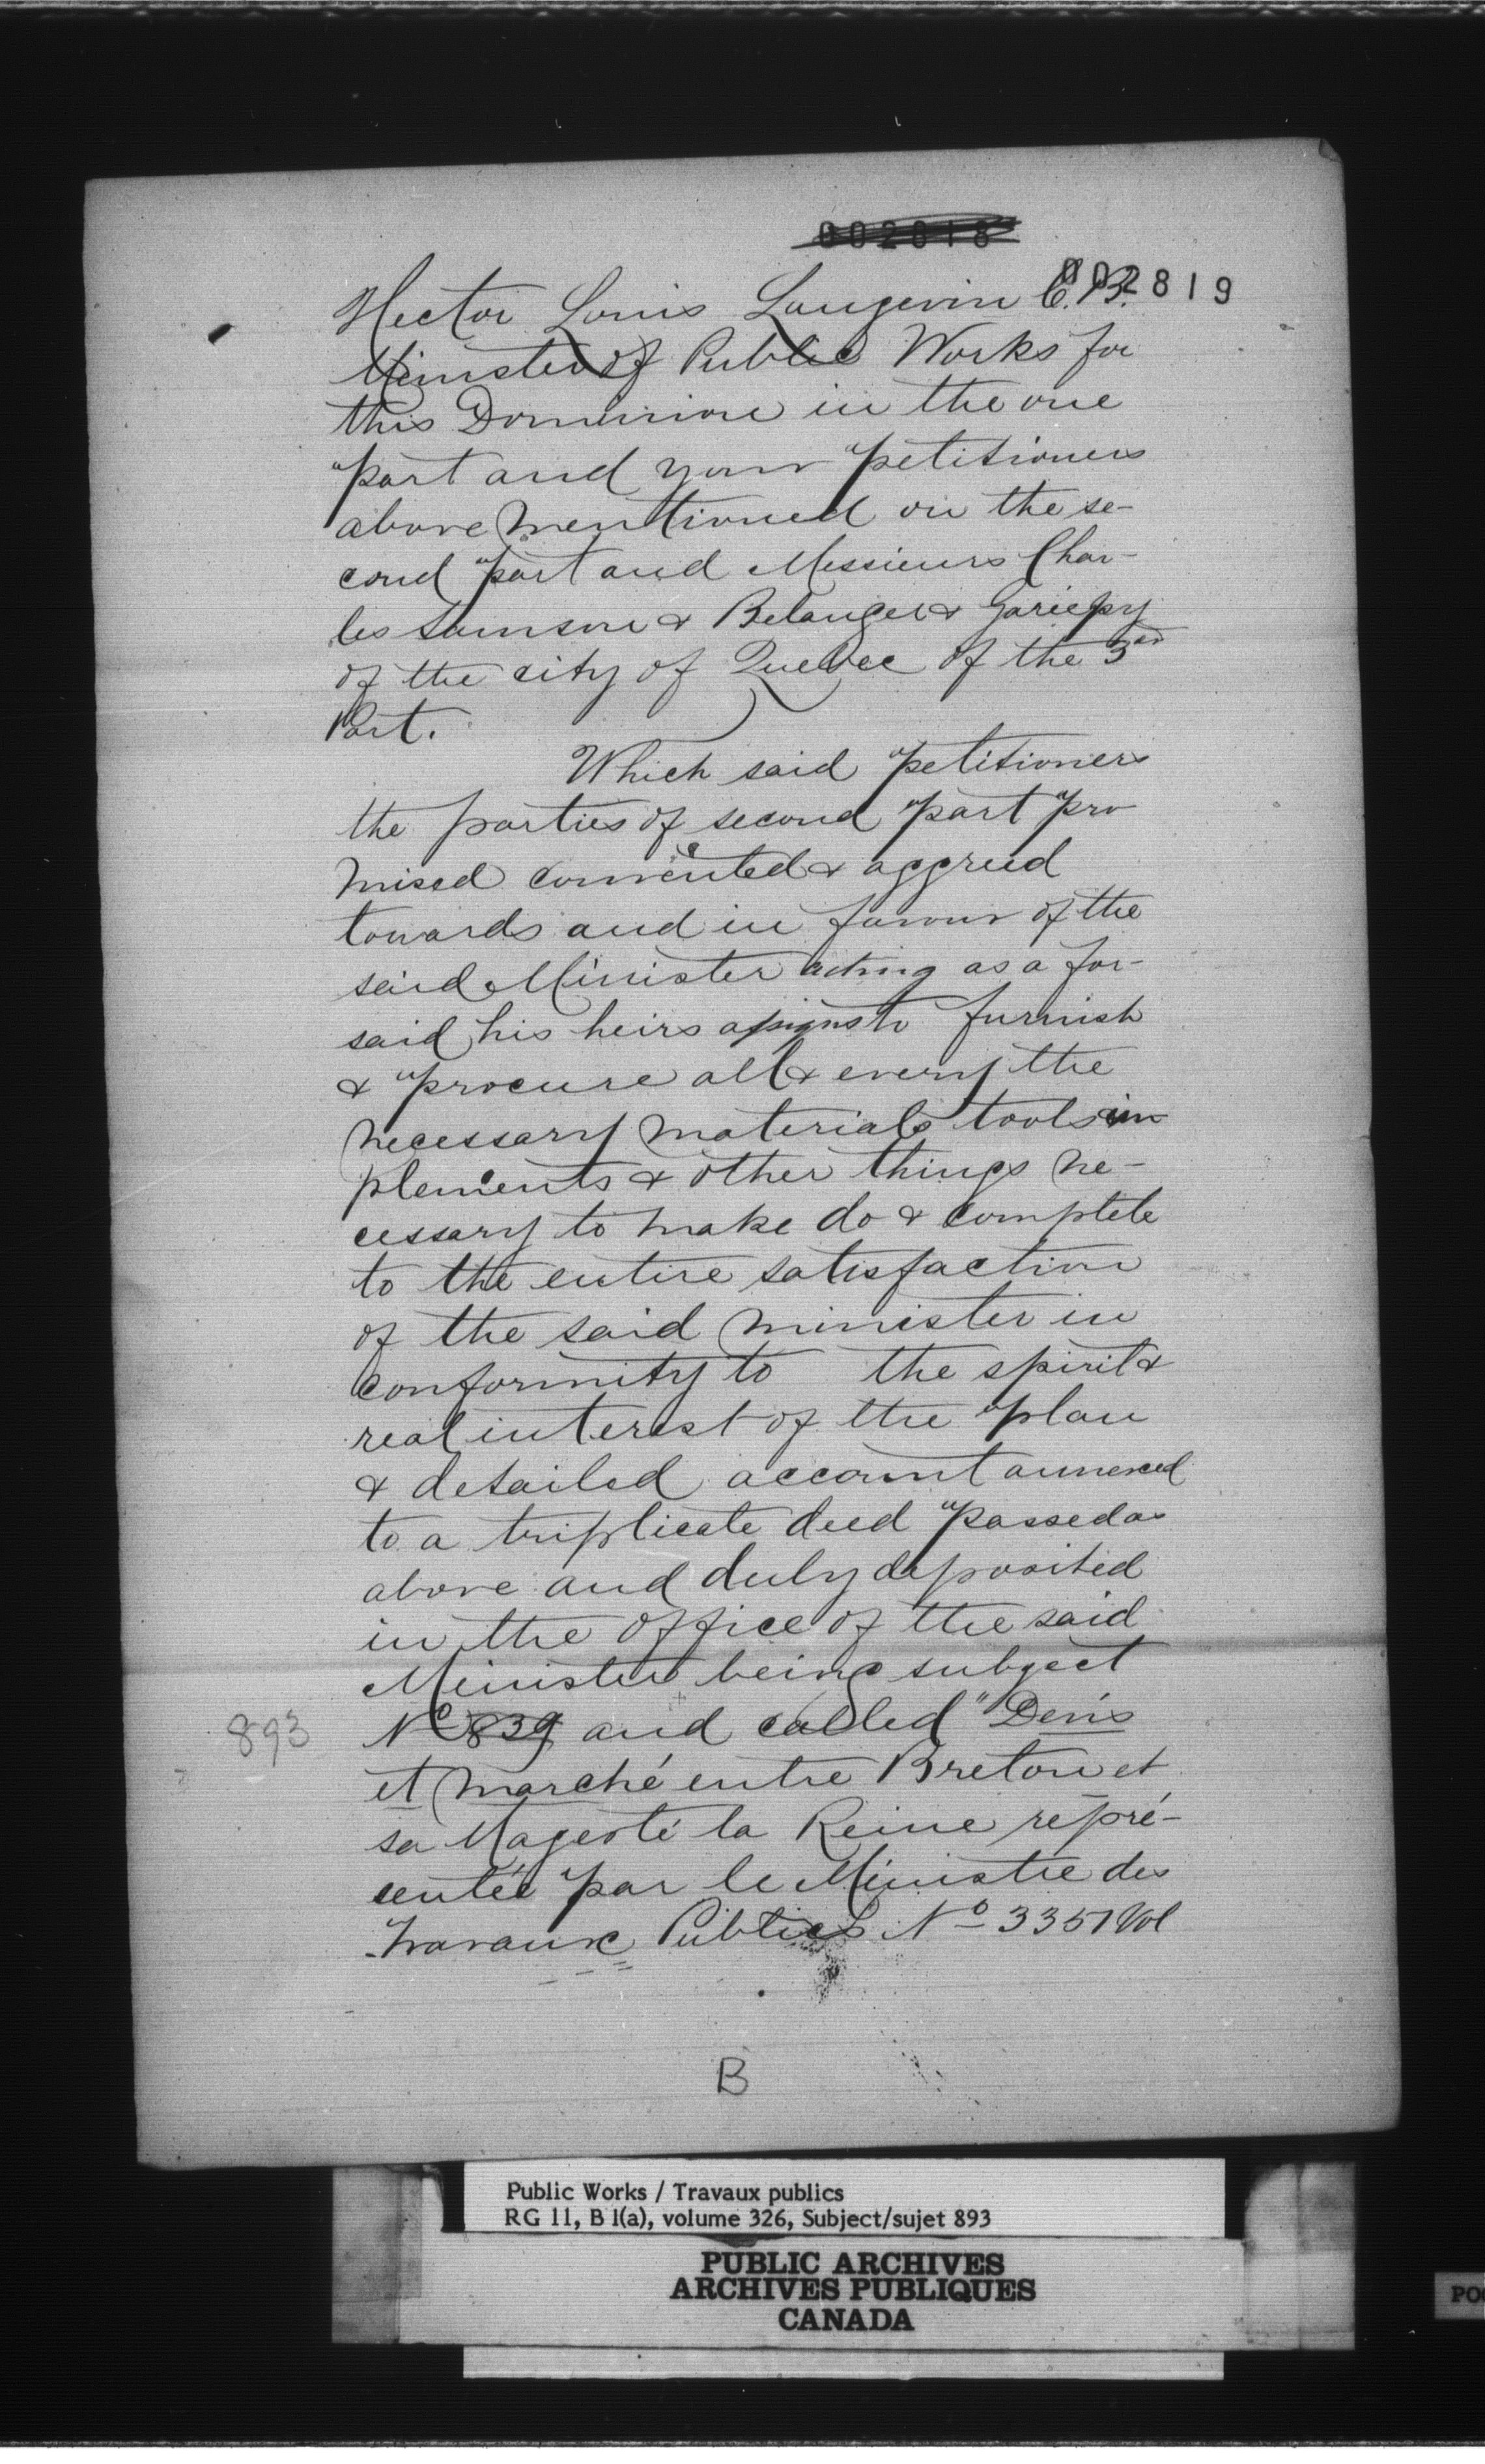 002818
002819
Hector Louis Langevin C.B.
Minister of Public Works for
this Dominion in the one
part and your petitioners
above mentioned on the se-
cond part and Messieurs Char-
les Samson & Belanger & Gariepy
of the city of Quebec of the 3rd
Part.
Which said petitioners
the parties of second part pro
mised convented & aggreed
towards and in favour of the
said Minister acting as a for-
said his heirs assigns to furnish
& procure all & every the
necessary materials tools im
plements & other things ne-
cessary to make do & complete
to the entire satisfaction
of the said minister in
conformity to the spirit &
real interest of the plan
& detailed account annexed
to a triplicate deed passed as
above and duly deposited
in the office of the said
Minister being subject
893
No 839 and called "Devis
et marché entre Breton et
sa Magesté la Reine repré-
sentée par le Ministre des
Travaux Publics No 3351 Vol
B
Public Works / Travaux publics
RG 11, B 1(a), volume 326, Subject/sujet 893
PUBLIC ARCHIVES
ARCHIVES PUBLIQUES
CANADA